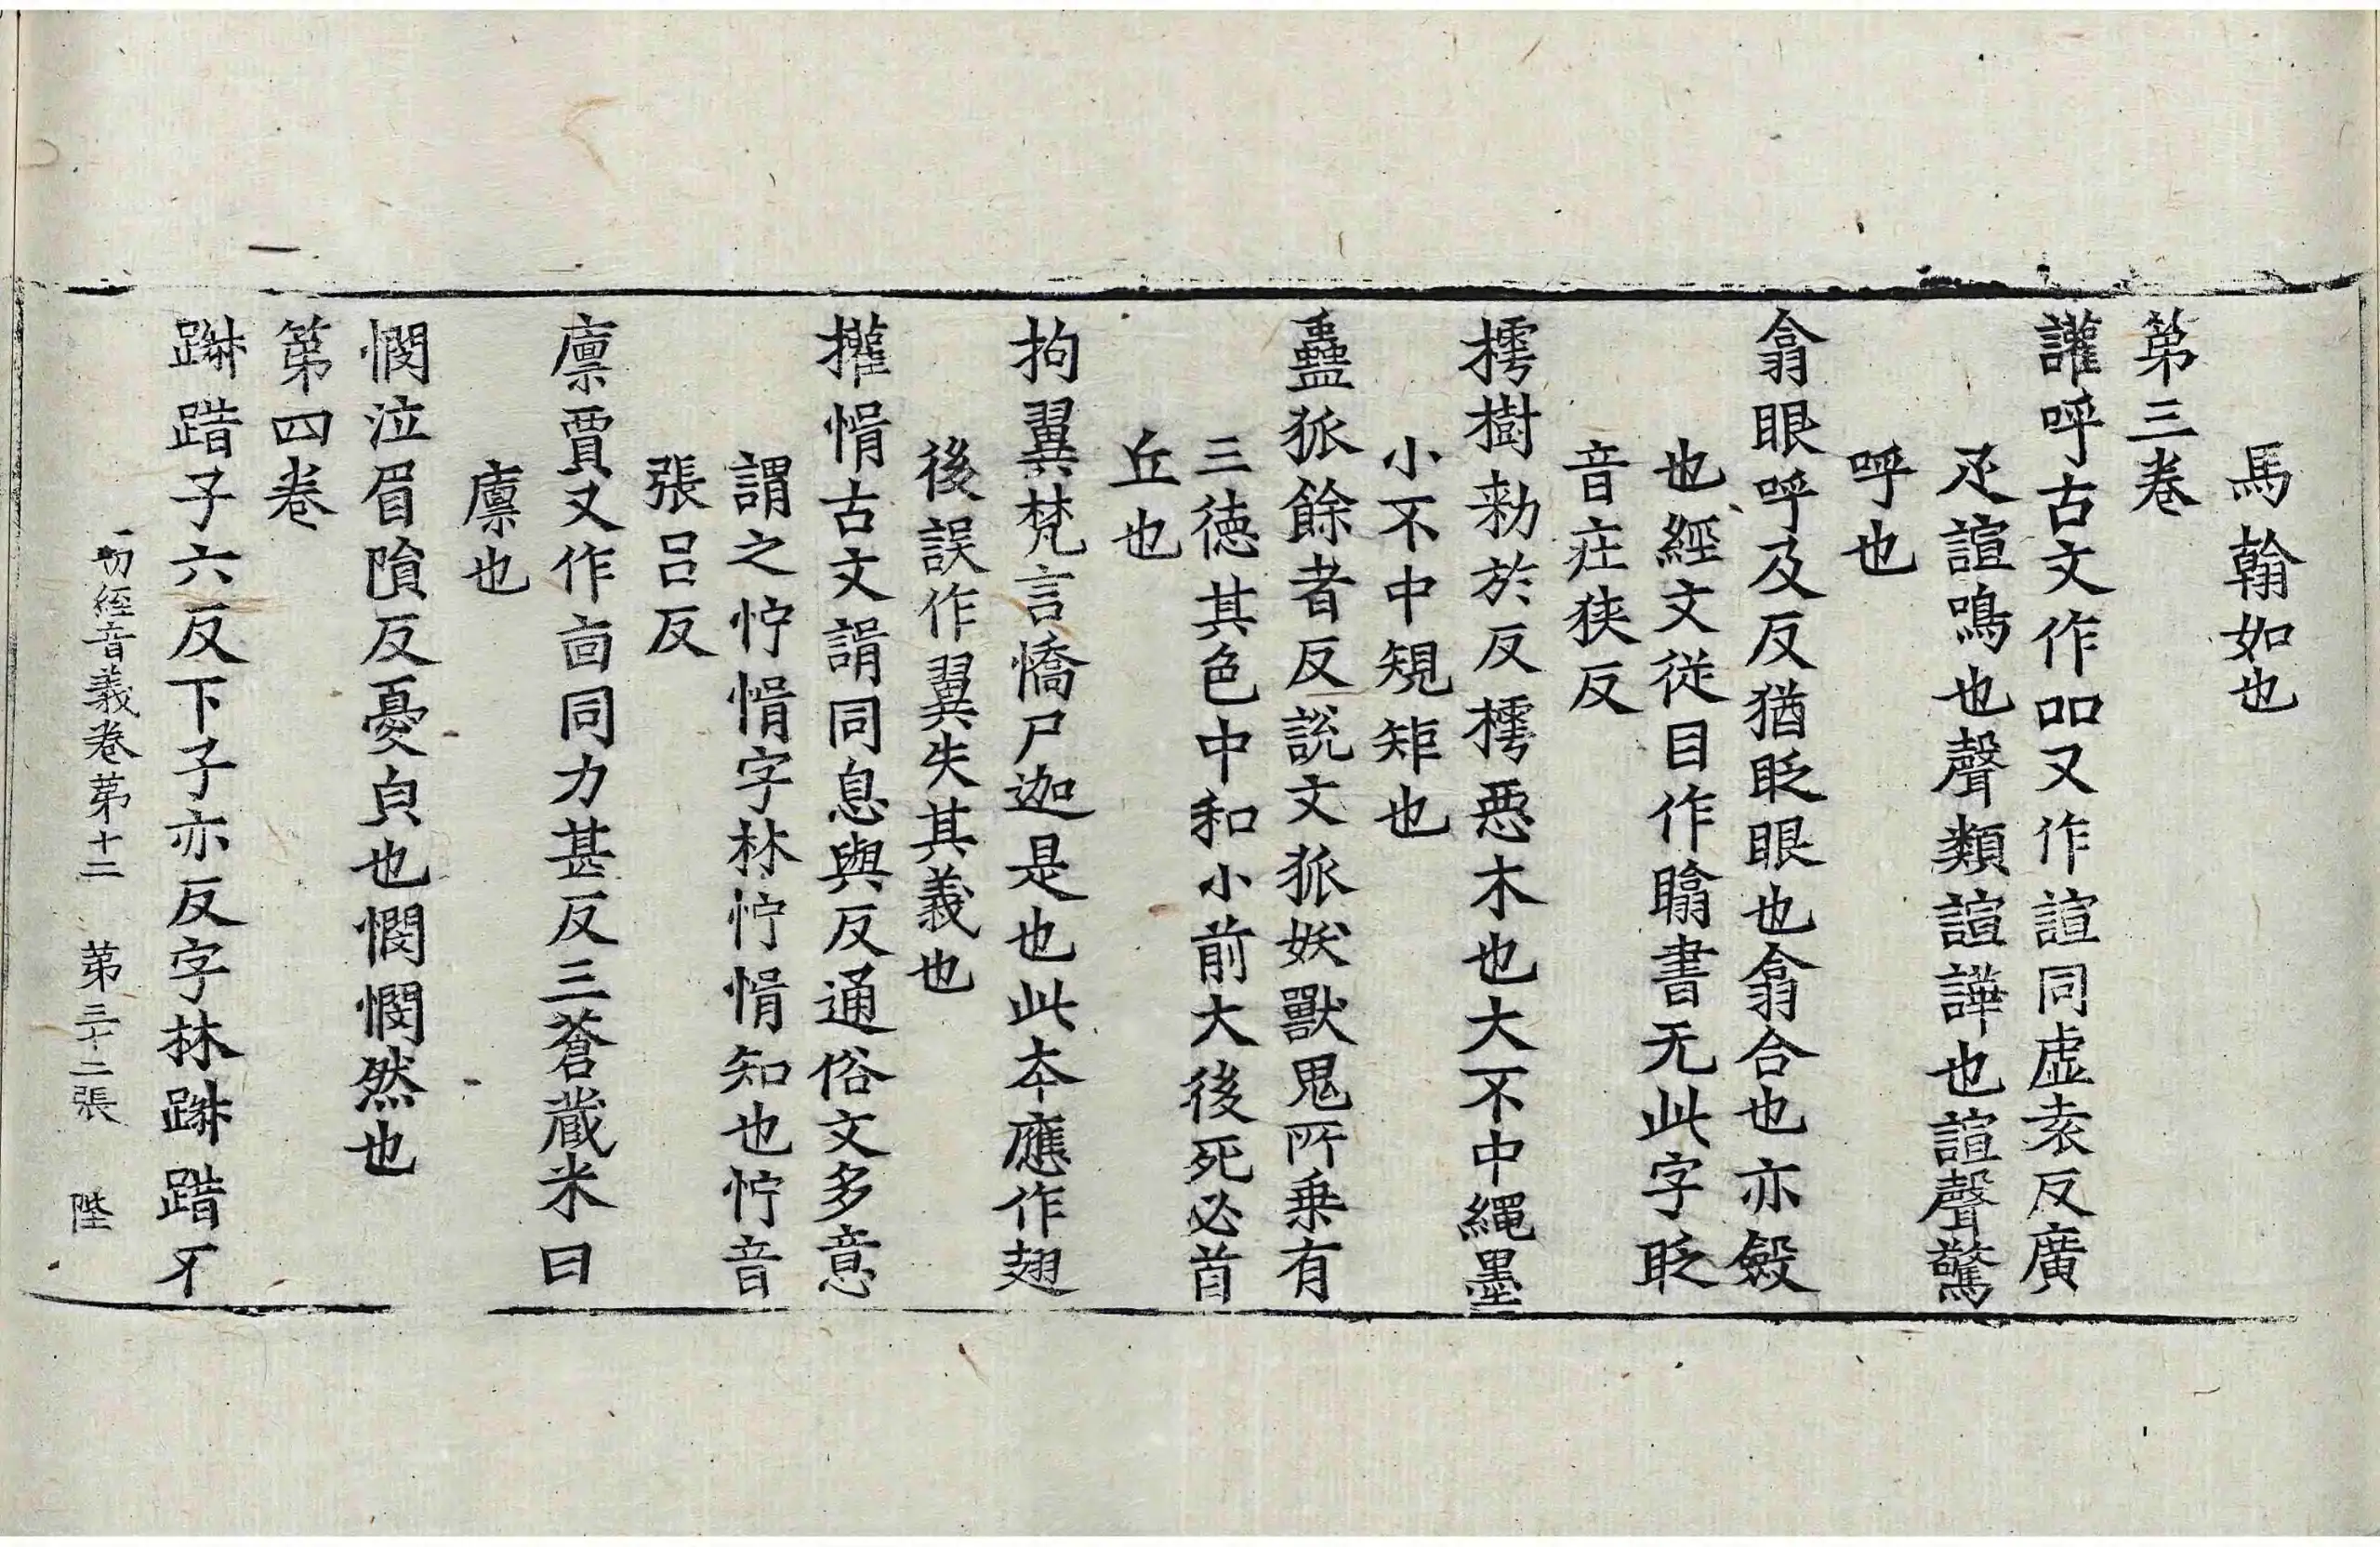 馬翰如也
第三卷
讙呼古文作吅又作諠同虛袁反廣
疋諠鳴也聲類諠譁也諠聲驚
呼也
翕眼呼及反猶眨眼也翕合也亦斂
也經文従目作瞈書无此字眨
音庄狹反
樗樹勑於反樗惡木也大不中繩墨
小不中規矩也
蠱狐餘者反說文狐妖獸鬼所乗有
三德其色中和小前大後死必首
丘也
拘翼梵言憍尸迦是也此本應作翅
後誤作翼失其義也
㩲㥠古文諝同息與反通俗文多意
謂之㤖㥠字林㤖㥠知也㤖音
張呂反
廪賈又作㐭同力甚反三蒼蔵米曰
廪也
憫泣眉隕反憂皃也憫憫然也
第四卷
踧踖子六反下子亦反字林踧踖不
一切經音義卷第十二 第三十二張 陛